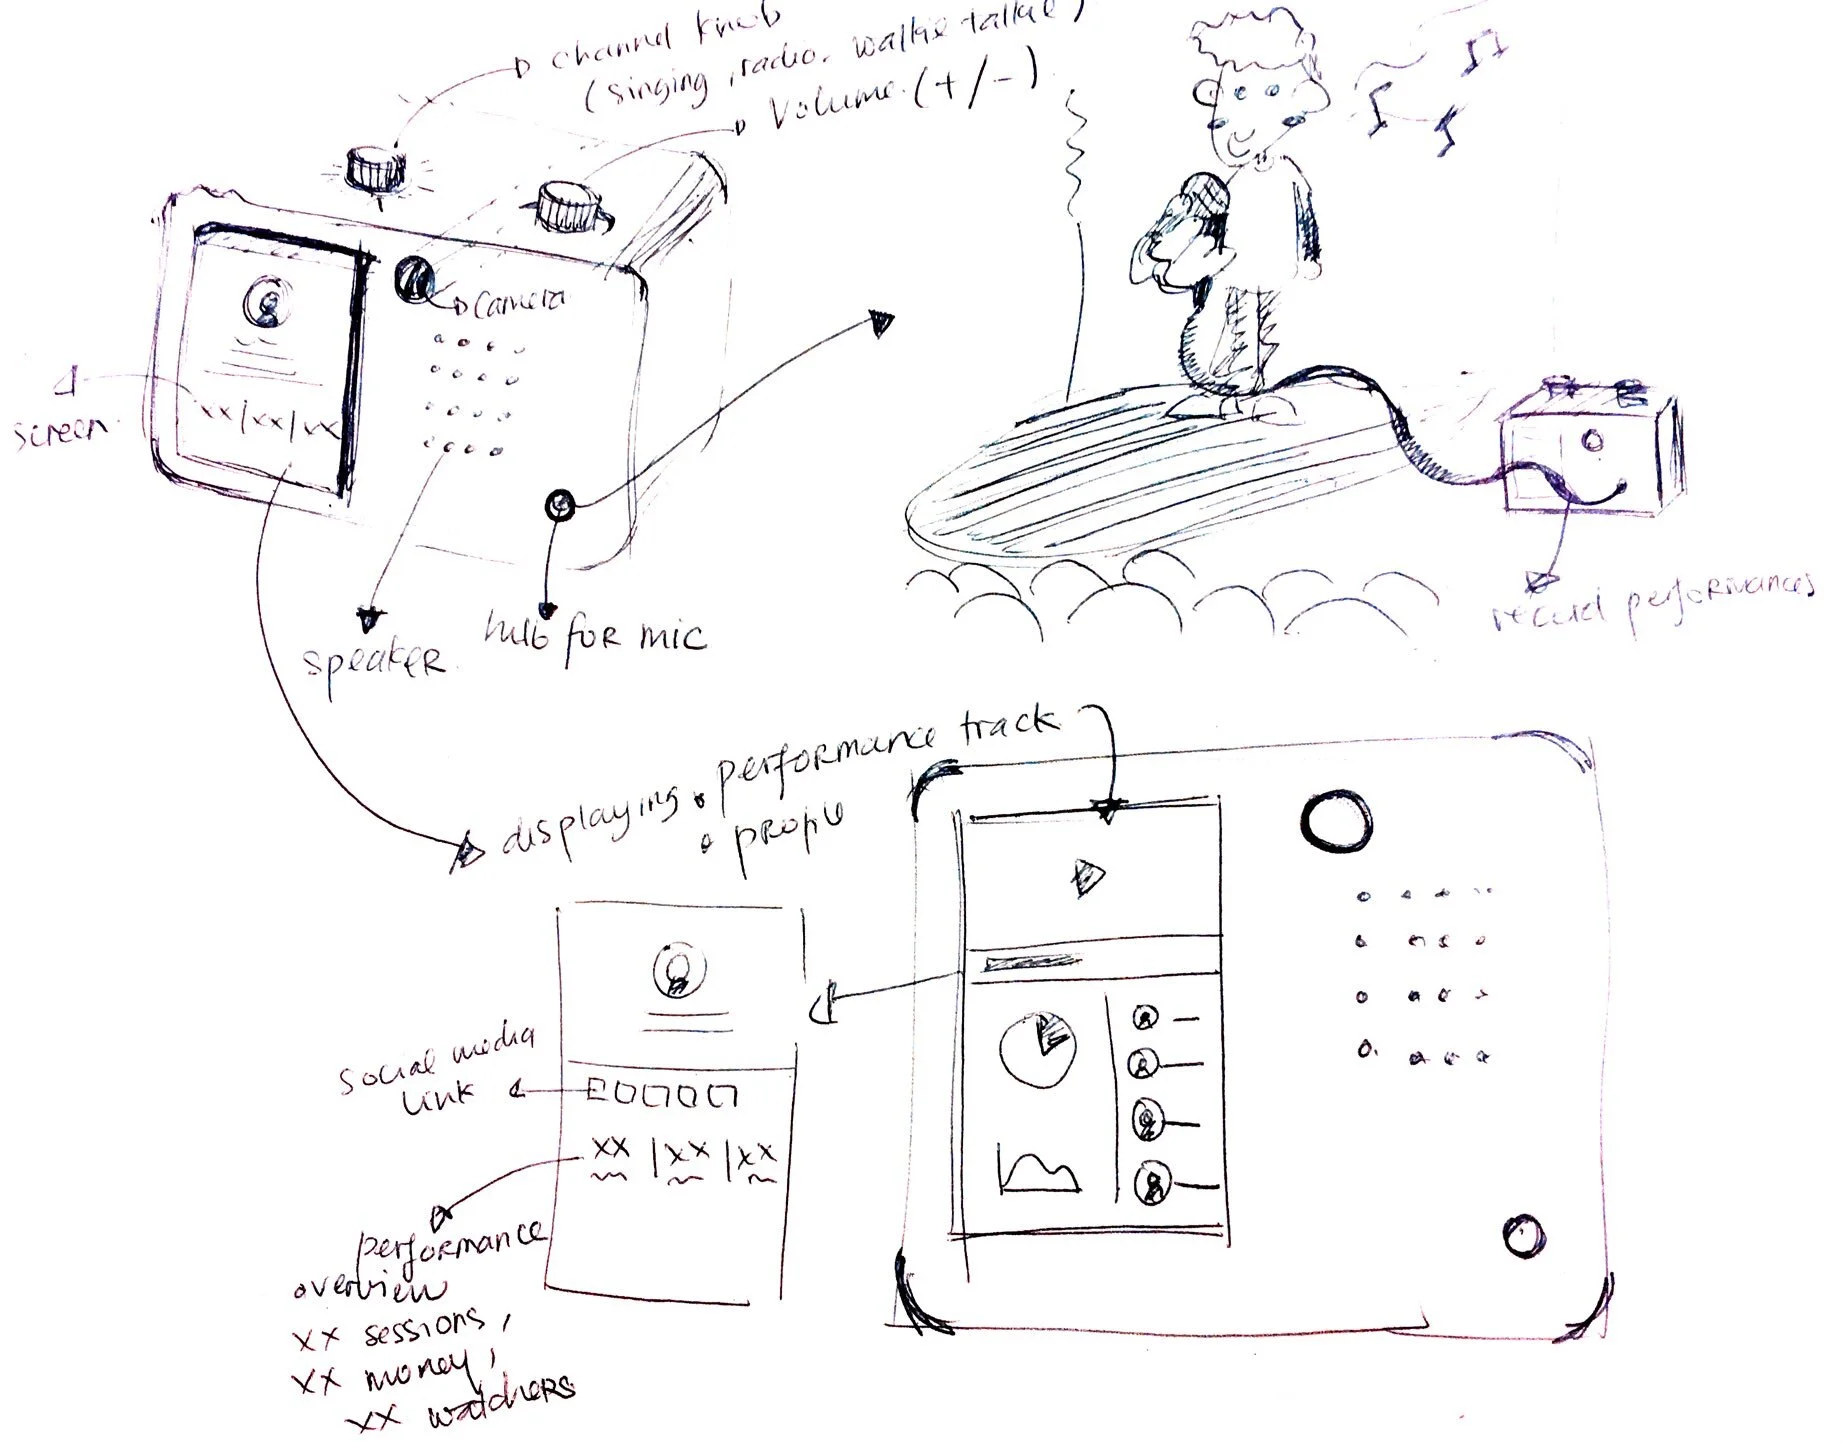 channel knob
(singing, radio, walkie talkie)
Volume (+/-)
camera
screen
xx/xx/xx
speaker
hub for mic
record performances
displaying • performance track
• profile
social media
link
xx | xx | xx
performance
overview
xx sessions,
xx money,
xx watchers